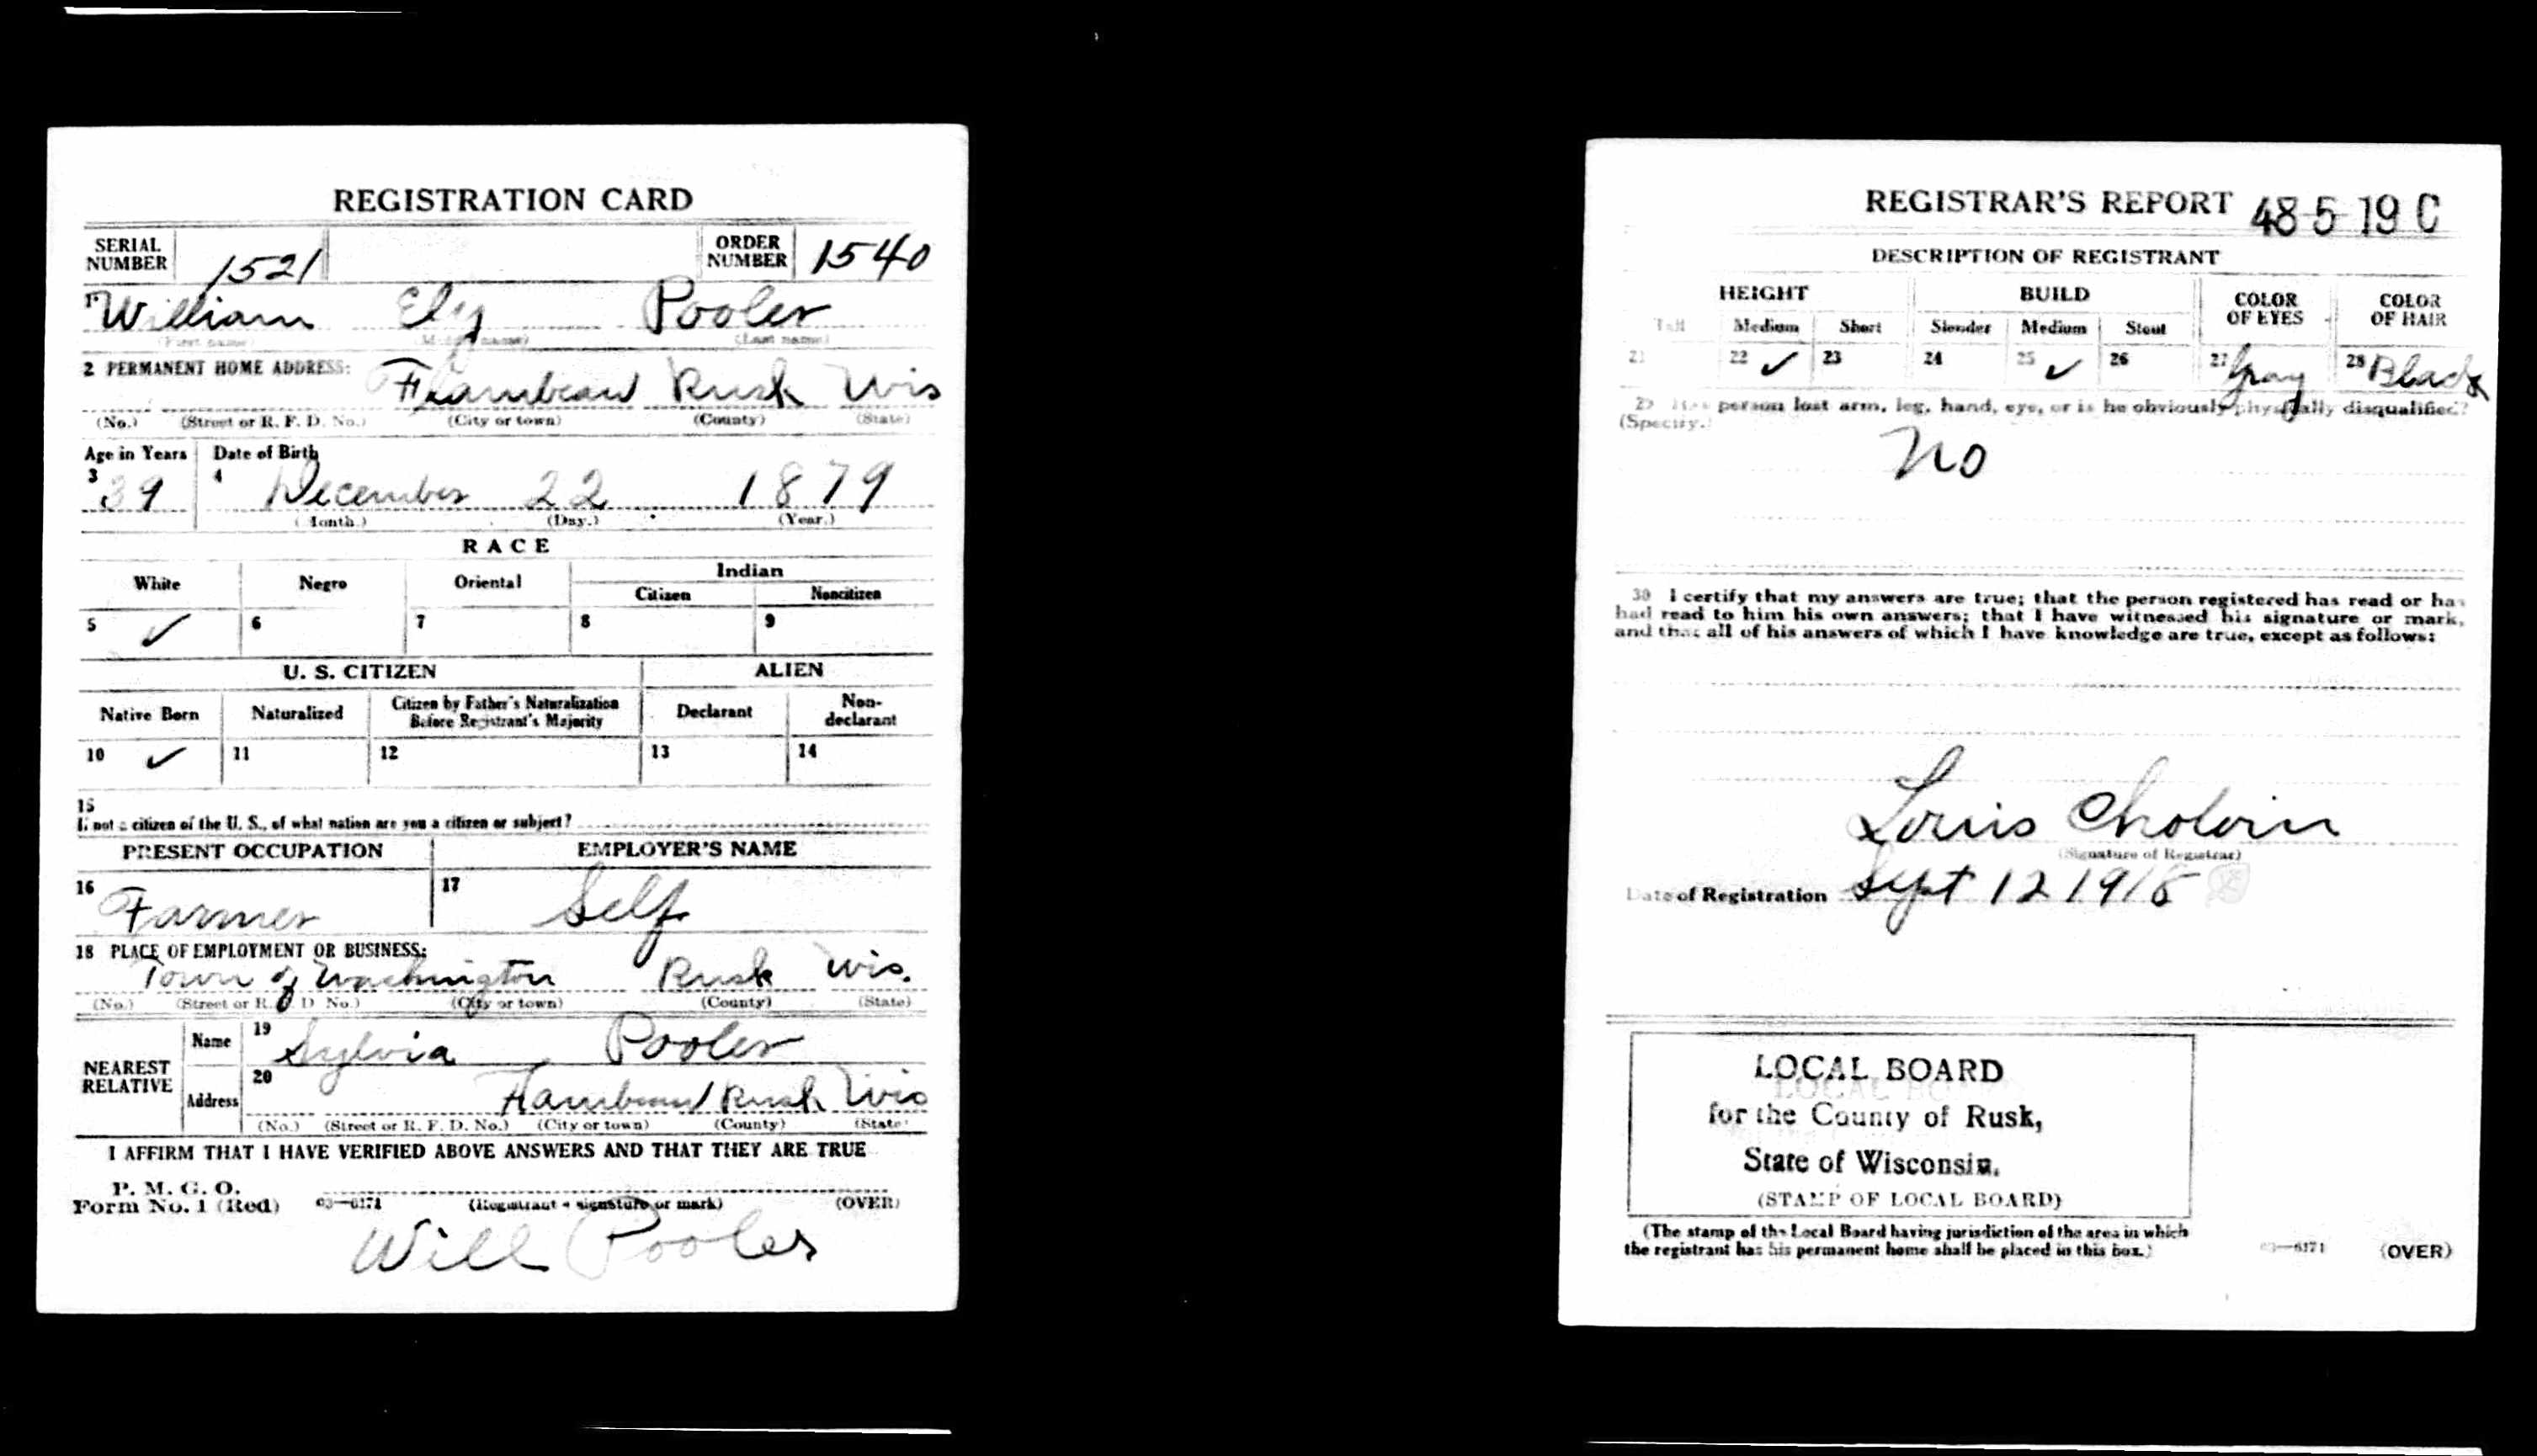 REGISTRATION CARD
SERIAL NUMBER 1521 ORDER NUMBER 1540
1 William Ely Pooler
(First name) (Middle name) (Last name)
2 PERMANENT HOME ADDRESS:
Flambeau Rusk Wis
(No.) (Street or R. F. D. No.) (City or town) (County) (State)
Age in Years Date of Birth
3 39 4 December 22 1879
(Month.) (Day.) (Year.)
RACE
White Negro Oriental Indian
Citizen Noncitizen
5 ✓ 6 7 8 9
U. S. CITIZEN ALIEN
Native Born Naturalized Citizen by Father's Naturalization Before Registrant's Majority Declarant Non-declarant
10 ✓ 11 12 13 14
15
If not a citizen of the U. S., of what nation are you a citizen or subject?
PRESENT OCCUPATION EMPLOYER'S NAME
16 Farmer 17 Self
18 PLACE OF EMPLOYMENT OR BUSINESS:
Town of Washington Rusk Wis.
(No.) (Street or R. F. D. No.) (City or town) (County) (State)
NEAREST RELATIVE
Name 19 Sylvia Pooler
Address 20 Flambeau Rusk Wis
(No.) (Street or R. F. D. No.) (City or town) (County) (State)
I AFFIRM THAT I HAVE VERIFIED ABOVE ANSWERS AND THAT THEY ARE TRUE
P. M. G. O.
Form No. 1 (Red) 03—6171 (Registrant's signature or mark) (OVER)
Will Pooler
REGISTRAR'S REPORT 48-5-19 C
DESCRIPTION OF REGISTRANT
HEIGHT BUILD COLOR OF EYES COLOR OF HAIR
Tall Medium Short Slender Medium Stout
21 22 ✓ 23 24 25 ✓ 26 27 Gray 28 Black
29 Has person lost arm, leg, hand, eye, or is he obviously physically disqualified?
(Specify.)
No
30 I certify that my answers are true; that the person registered has read or has
had read to him his own answers; that I have witnessed his signature or mark,
and that all of his answers of which I have knowledge are true, except as follows:
Louis
(Signature of Registrar)
Date of Registration Sept 12 1918
LOCAL BOARD
for the County of Rusk,
State of Wisconsin.
(STAMP OF LOCAL BOARD)
(The stamp of the Local Board having jurisdiction of the area in which
the registrant has his permanent home shall be placed in this box.)
03—6171 (OVER)